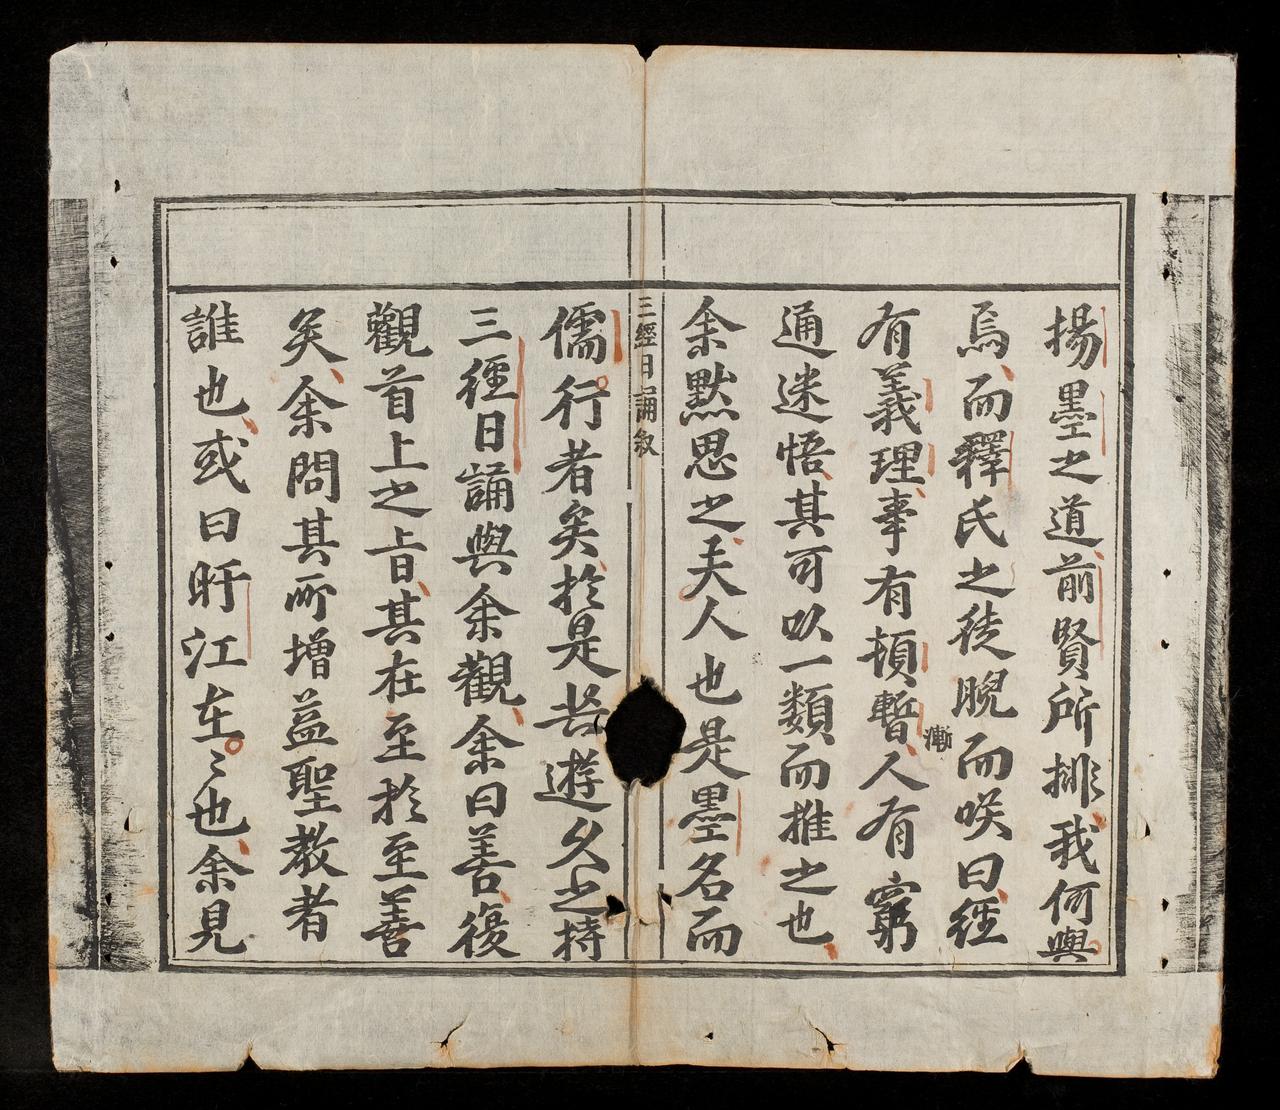 揚墨之道前賢所排我何與
焉而釋氏之徒睨而咲曰經
有義理事有頓暫人有窮
漸
通迷悟其可以一類而推之也
余默思之夫人也是墨名而
三經日誦敘
儒行者矣於是若遊久之持
三經日誦與余觀余曰善復
觀首上之旨其在至於至善
矣余問其所增益聖教者
誰也或曰旴江在〻也余見